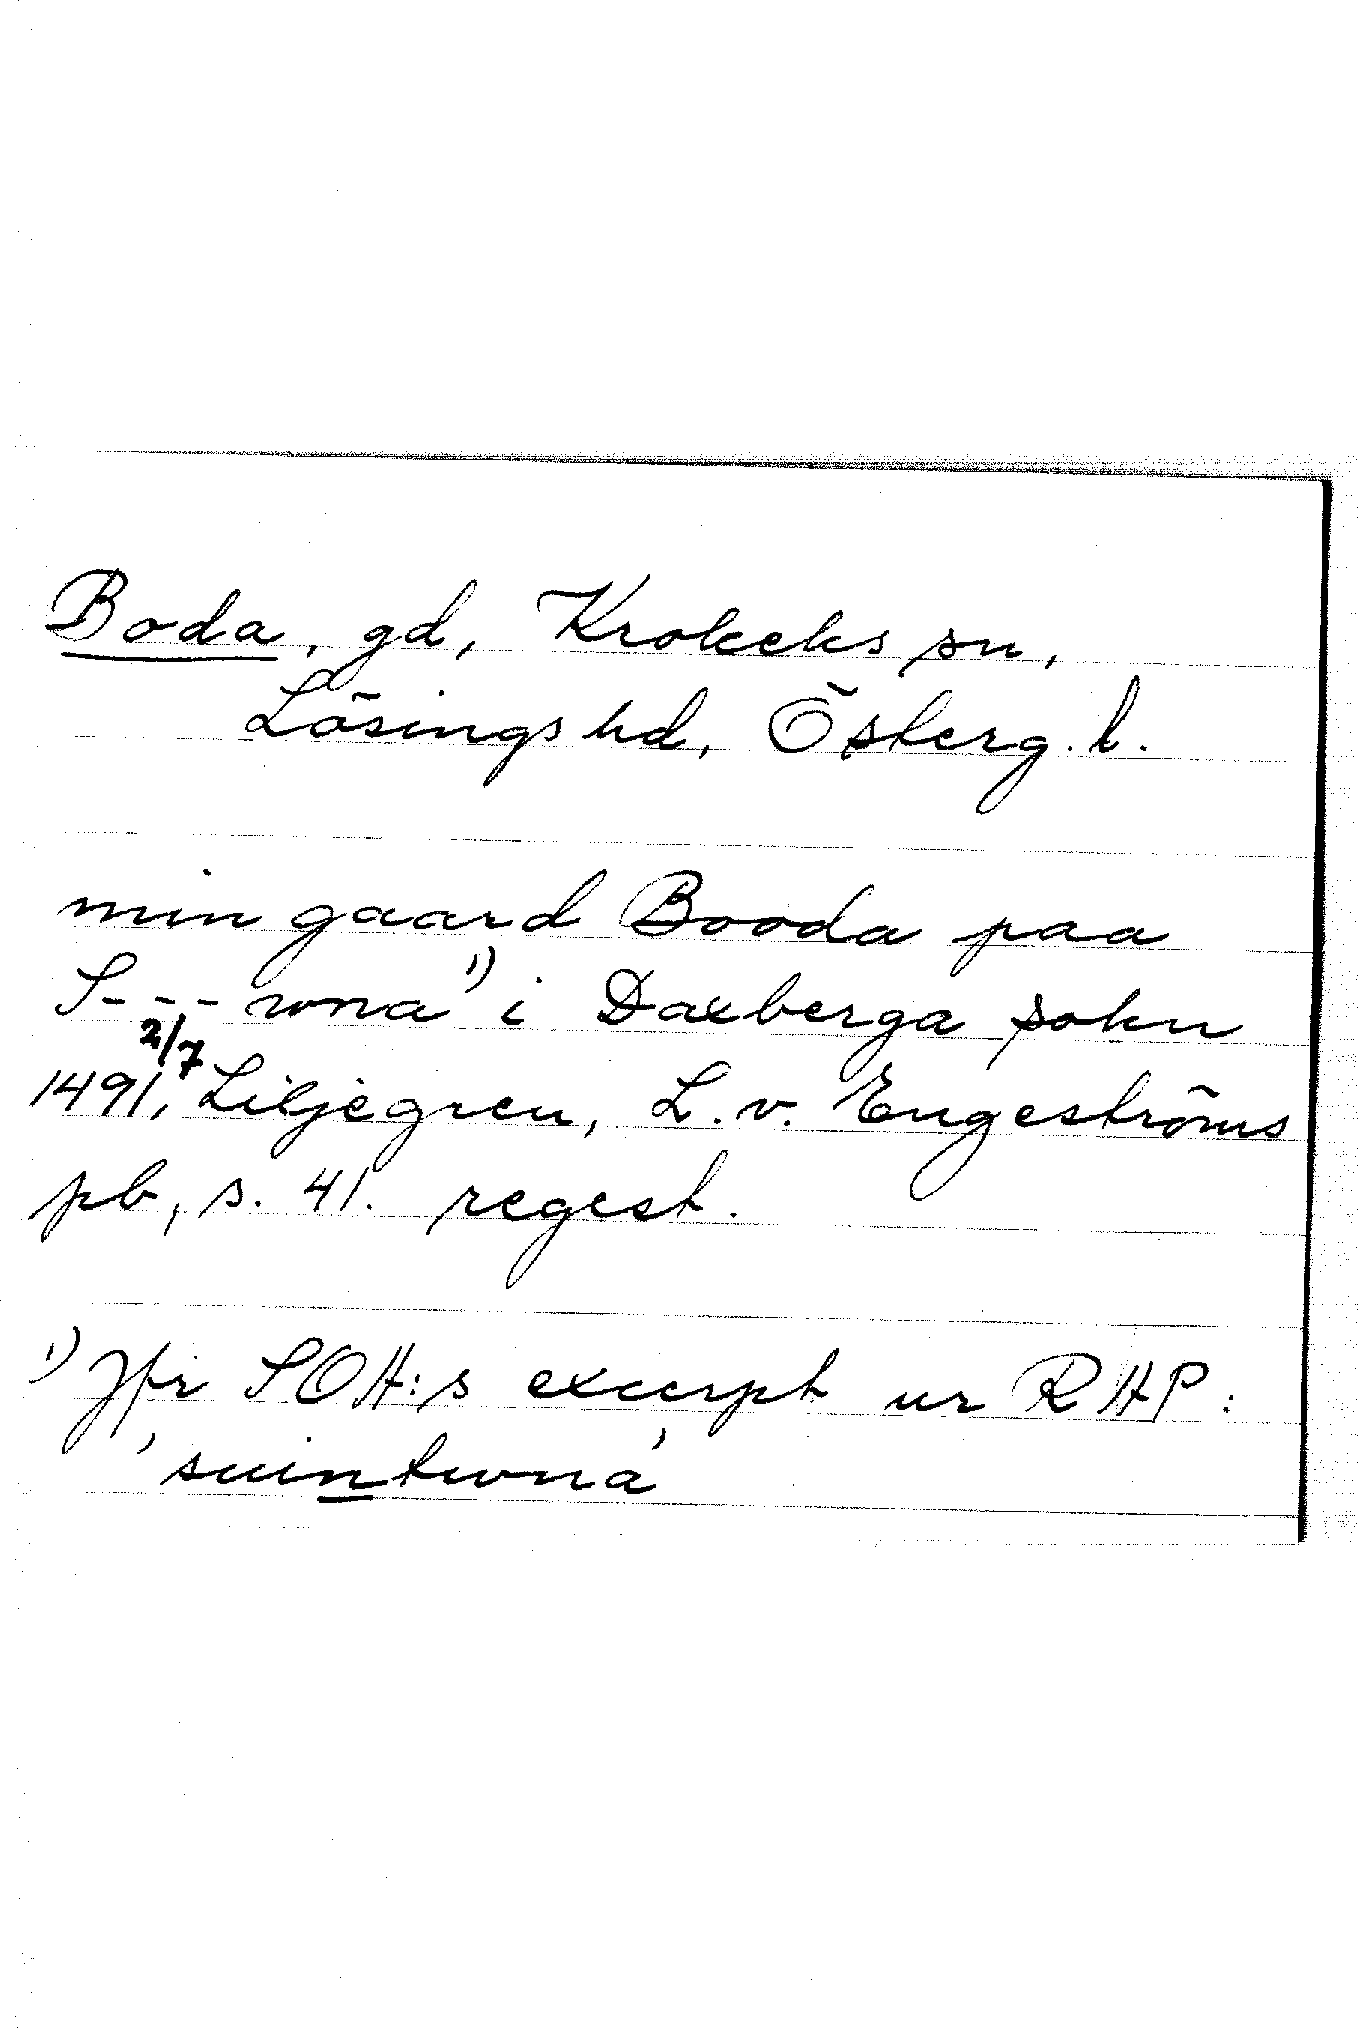 Boda, gd, Krokeks sn,
Lösings hd, Österg. l.
min gaard Booda paa
S--- wna 1) i Daxberga sokn
1491 2/7, Liljegren, L. v. Engeströms
pb, s. 41. regest.
1) Jfr SOH:s excerpt ur RHP:
'suintwna'